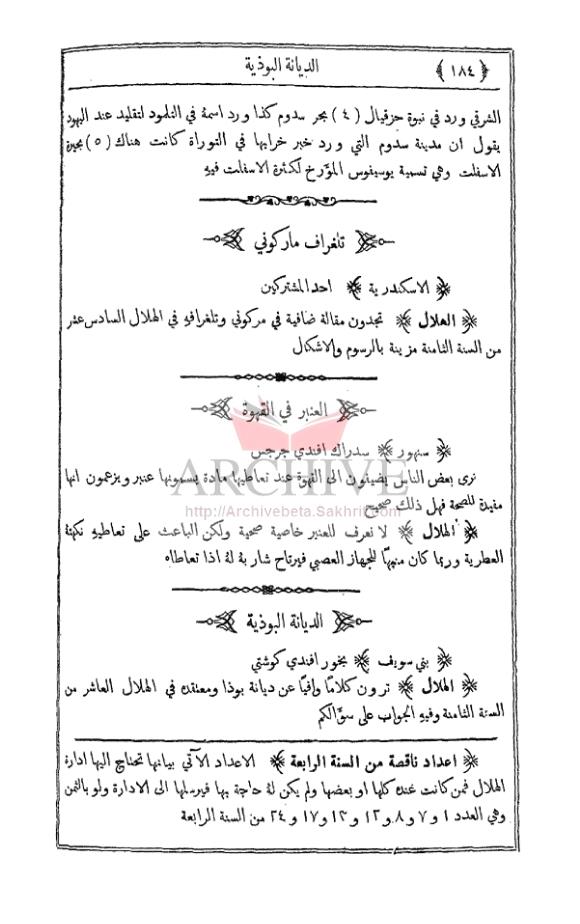 ﴿ ١٨٤ ﴾ الديانة البوذية
الشرقي ورد في نبوة حزقيال ( ٤ ) بحر سدوم كذا ورد اسمهُ في التلمود لتقليد عند اليهود
يقول ان مدينة سدوم التي ورد خبر خرابها في التوراة كانت هناك ( ٥ ) بحيرة
الاسفلت وهي تسمية يوسيفوس المؤرخ لكثرة الاسفلت فيهِ
تلغراف ماركوني
﴿ الاسكندرية ﴾ احد المشتركين
﴿ الهلال ﴾ تجدون مقالة ضافية في مركوني وتلغرافهِ في الهلال السادس عشر
من السنة الثامنة مزينة بالرسوم والاشكال
العنبر في القهوة
﴿ سنهور ﴾ سدراك افندي جرجس
نرى بعض الناس يضيفون الى القهوة عند تعاطيها مادة يسمونها عنبر ويزعمون انها
مفيدة للصحة فهل ذلك صحيح
﴿ الهلال ﴾ لا نعرف للعنبر خاصية صحية ولكن الباعث على تعاطيهِ نكهتهُ
العطرية وربما كان منبهاً للجهاز العصبي فيرتاح شاربهُ لهُ اذا تعاطاه
الديانة البوذية
﴿ بني سويف ﴾ بخور افندي كوشتي
﴿ الهلال ﴾ ترون كلاماً وافياً عن ديانة بوذا ومعتقده في الهلال العاشر من
السنة الثامنة وفيهِ الجواب على سؤالكم
﴿ اعداد ناقصة من السنة الرابعة ﴾ الاعداد الآتي بيانها تحتاج اليها ادارة
الهلال فمن كانت عنده كلها او بعضها ولم يكن لهُ حاجة بها فيرسلها الى الادارة ولو بالثمن
وهي العدد ١ و ٧ و ٨ و ١٢ و ١٣ و ١٧ و ٢٤ من السنة الرابعة
ARCHIVE
http://Archivebeta.Sakhrit.com